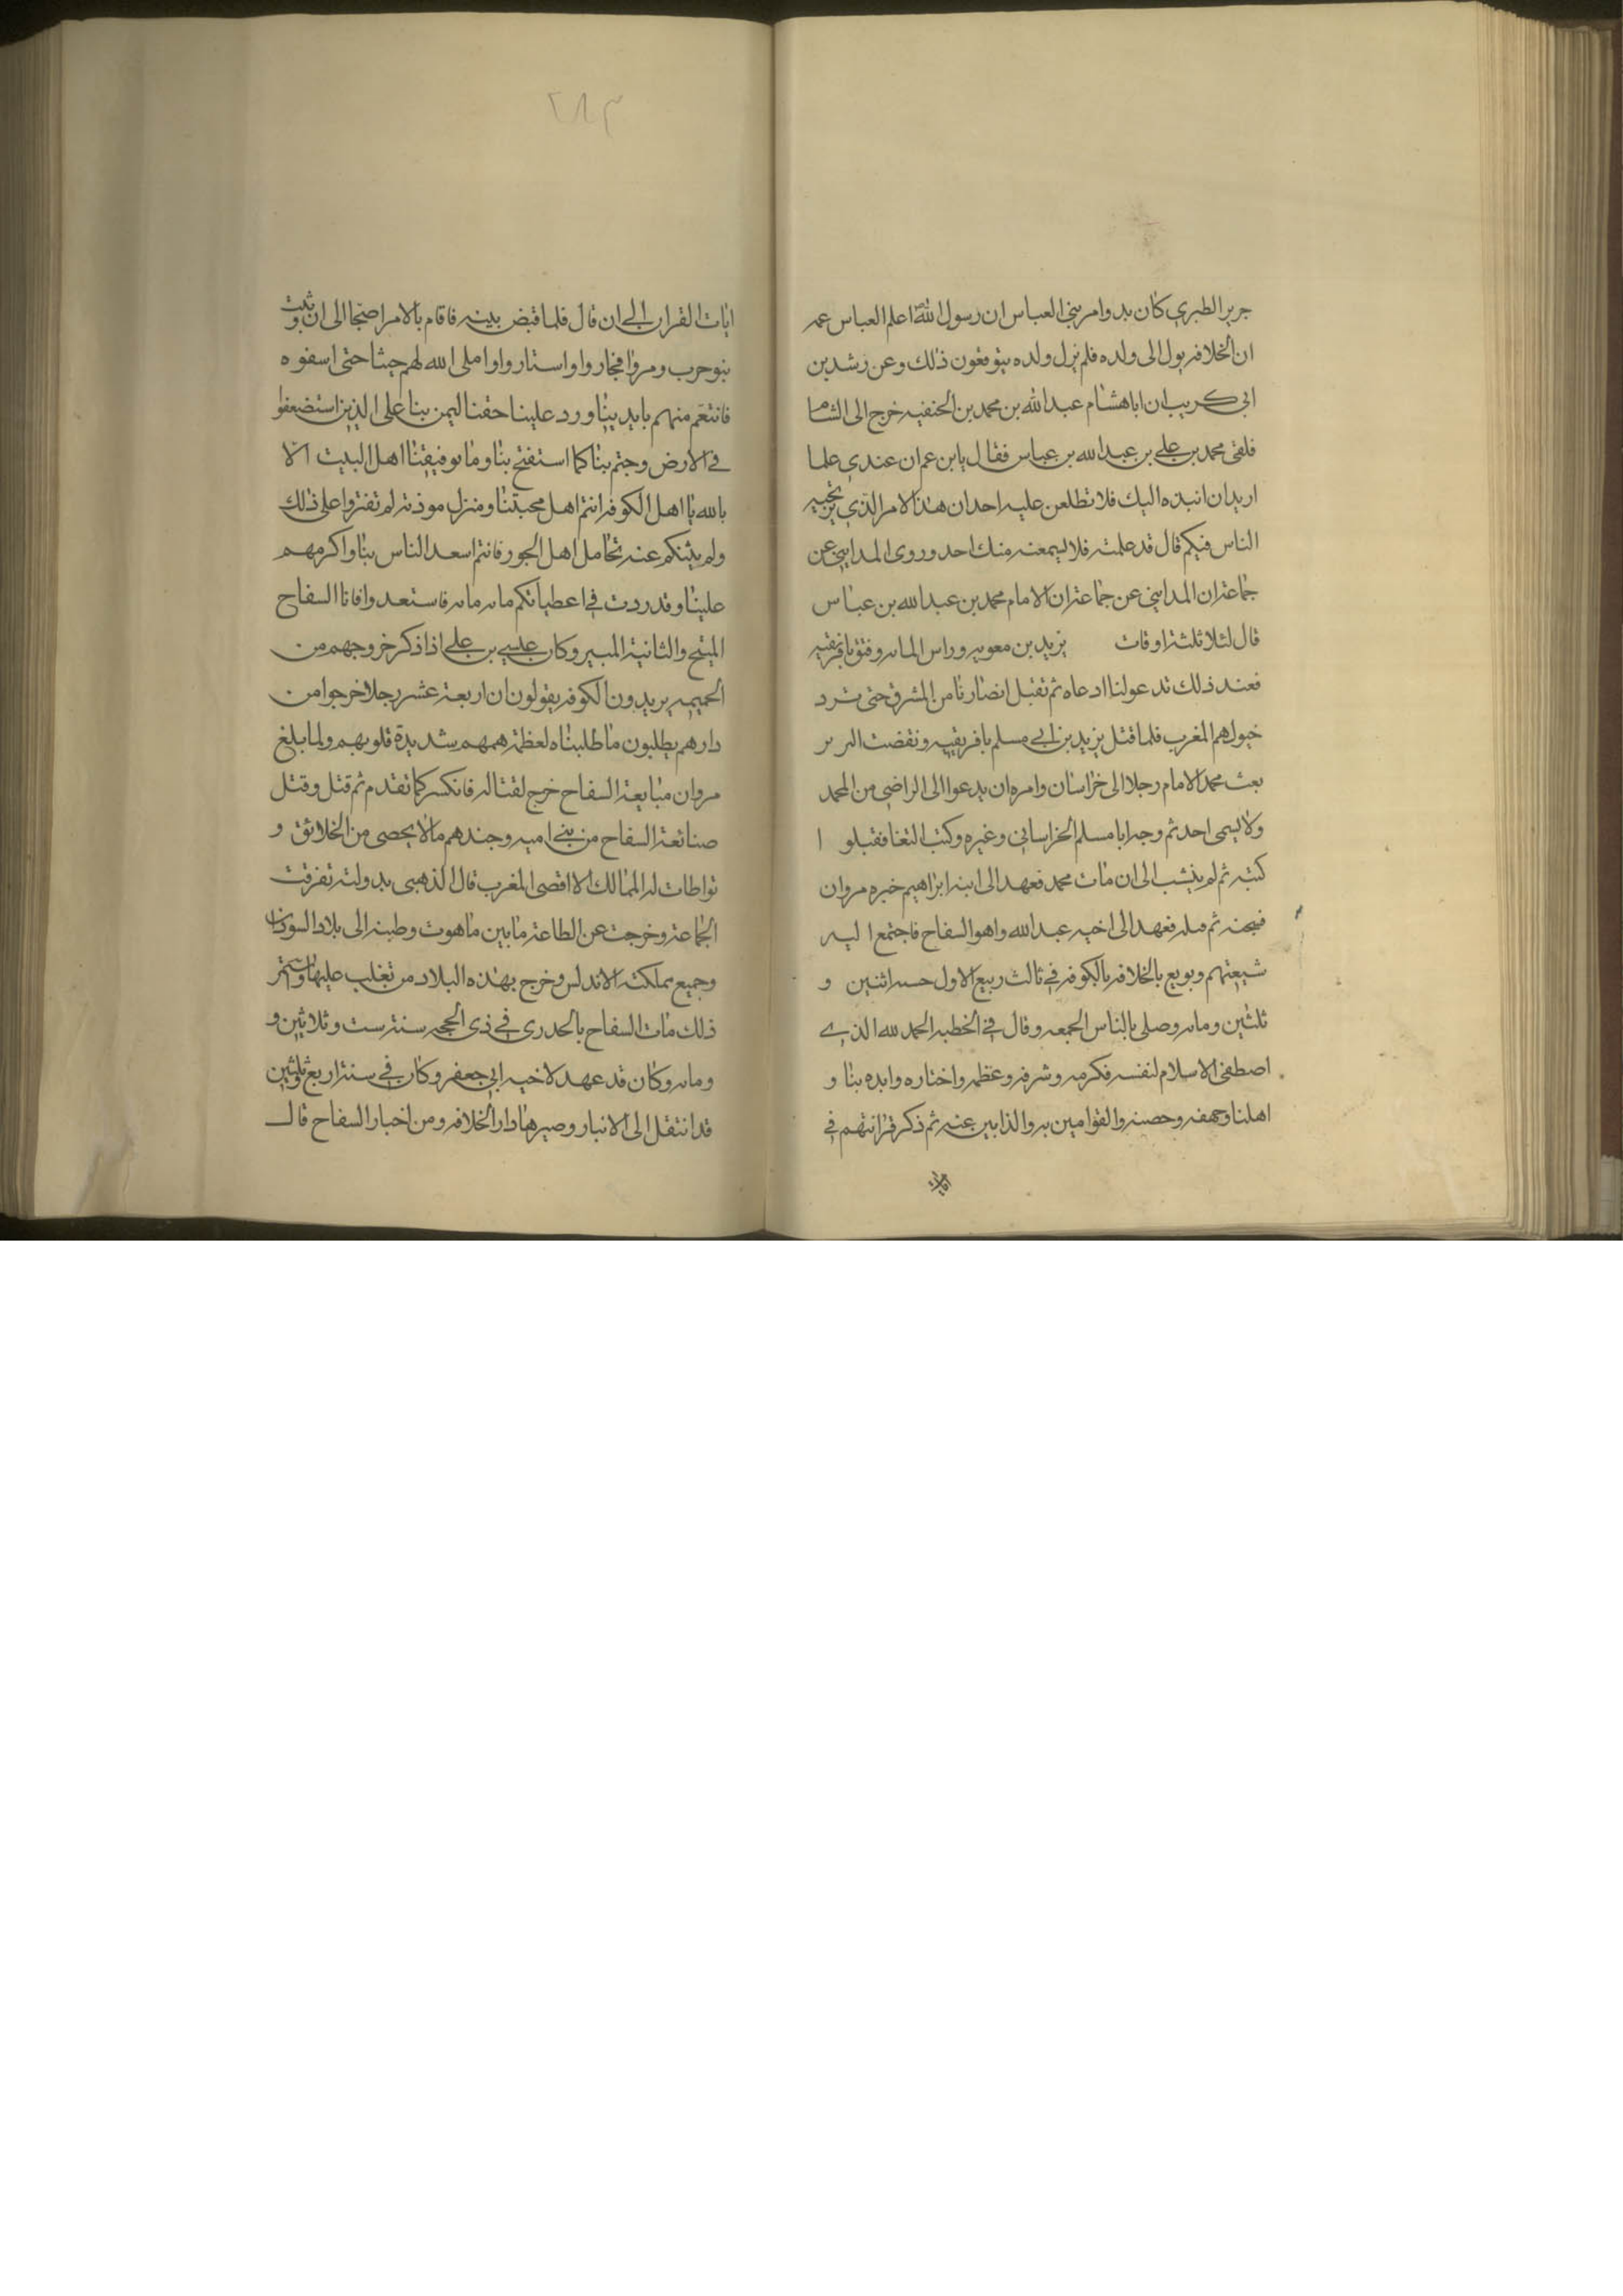 جرير الطبري كان بدو امر بني العباس ان رسول الله اعلم العباس عمه
ان الخلافه يول الى ولده فلم يزل ولده يتوقعون ذلك وعن رشدين
ابي كريب ان اباهشام عبد الله بن محمد بن الحنفيه خرج الى الشام
فلقى محمد بن علي بن عبد الله بن عباس فقال يا بن عم ان عندي علما
اريد ان انبذه اليك فلا تطلعن عليه احد ان هذا الامر الذي يرتجيه
الناس فيكم قال قد علمته فلا يسمعنه منك احد وروى المدايني عن
جماعة ان المدايني عن جماعة ان الامام محمد بن عبد الله بن عباس
قال لثلا ثلثة اوقات يزيد بن معويه وراس المايه وفتق بافريقيه
فعند ذلك تدعولنا ادعاه ثم تقبل انصارنا من المشرق حتى ترد
خيولهم المغرب فلما قتل يزيد بن ابي مسلم بافريقيه ونقضت البربر
بعث محمد الامام رجلا الى خراسان وامره ان يدعوا الى الراضي من المحمد
ولا يسمى احد ثم وجه ابا مسلم الخراساني وغيره وكتب التغنا فقبلوا
كتبه ثم لم ينشب الى ان مات محمد فعهد الى ابنه ابراهيم خبره مروان
فسجنه ثم قتله فعهد الى اخيه عبد الله واهو السفاح فاجتمع اليه
شيعتهم وبويع بالخلافه بالكوفه في ثالث ربيع الاول اثنين و
ثلثين ومايه وصلى بالناس الجمعه وقال في الخطبه الحمد لله الذي
اصطفى الاسلام لنفسه فكرمه وشرفه وعظمه واختاره وايده بنا و
اهلنا وحصنه والقوامين به والذابين عنه ثم ذكر قرابتهم في
ايات
٢٨٣
ايات القران الي ان قال فلما قبض بينه فاقام بالامر اصحا الى ان وثبت
بنو حرب ومروا فجاروا واستاروا واملى الله لهم حيثا حتى اسفوه
فانتقم منهم بايديينا ورد علينا حقنا ليمن بنا على الذين استضعفوا
في الارض وجتم بنا كما استفتح بنا وما توفيقنا اهل البيت الا
بالله يا اهل الكوفه انتم اهل محبتنا ومنزل موذته لم تفتروا على ذلك
ولم يثنكم عنه تحامل اهل الجور فانتم اسعد الناس بنا واكرمهم
علينا وقد ردت في اعطياتكم مايه مايه فاستعدوا فانا السفاح
المبتح والثانية المبير وكان عليسي بن علي اذا ذكر خروجهم من
الحميمه يريدون الكوفه يقولون ان اربعة عشر رجلا خرجوا من
دارهم يطلبون ما طلبناه لعظمة هممهم شديدة قلوبهم ولما بلغ
مروان مبايعة السفاح خرج لقتاله فانكسر كما تقدم ثم قتل وقتل
صنائعة السفاح من بني اميه وجندهم ما لا يحصى من الخلائق و
تواطات له الممالك الا اقصى المغرب قال الذهبي بدولته تفرقت
الجماعة وخرجت عن الطاعة ما بين ماهوت وطبنه الى بلاد السودان
وجميع مملكته الاندلس وخرج بهذه البلاد من تغلب عليها واستمر
ذلك مات السفاح بالحدري في ذي الحجه سنة ست وثلاثين و
ومايه وكان قد عهد لاخيه ابي جعفر وكان في سنة اربع وثلثين
قد انتقل الى الانبار وصيرها دار الخلافه ومن اخبار السفاح قال